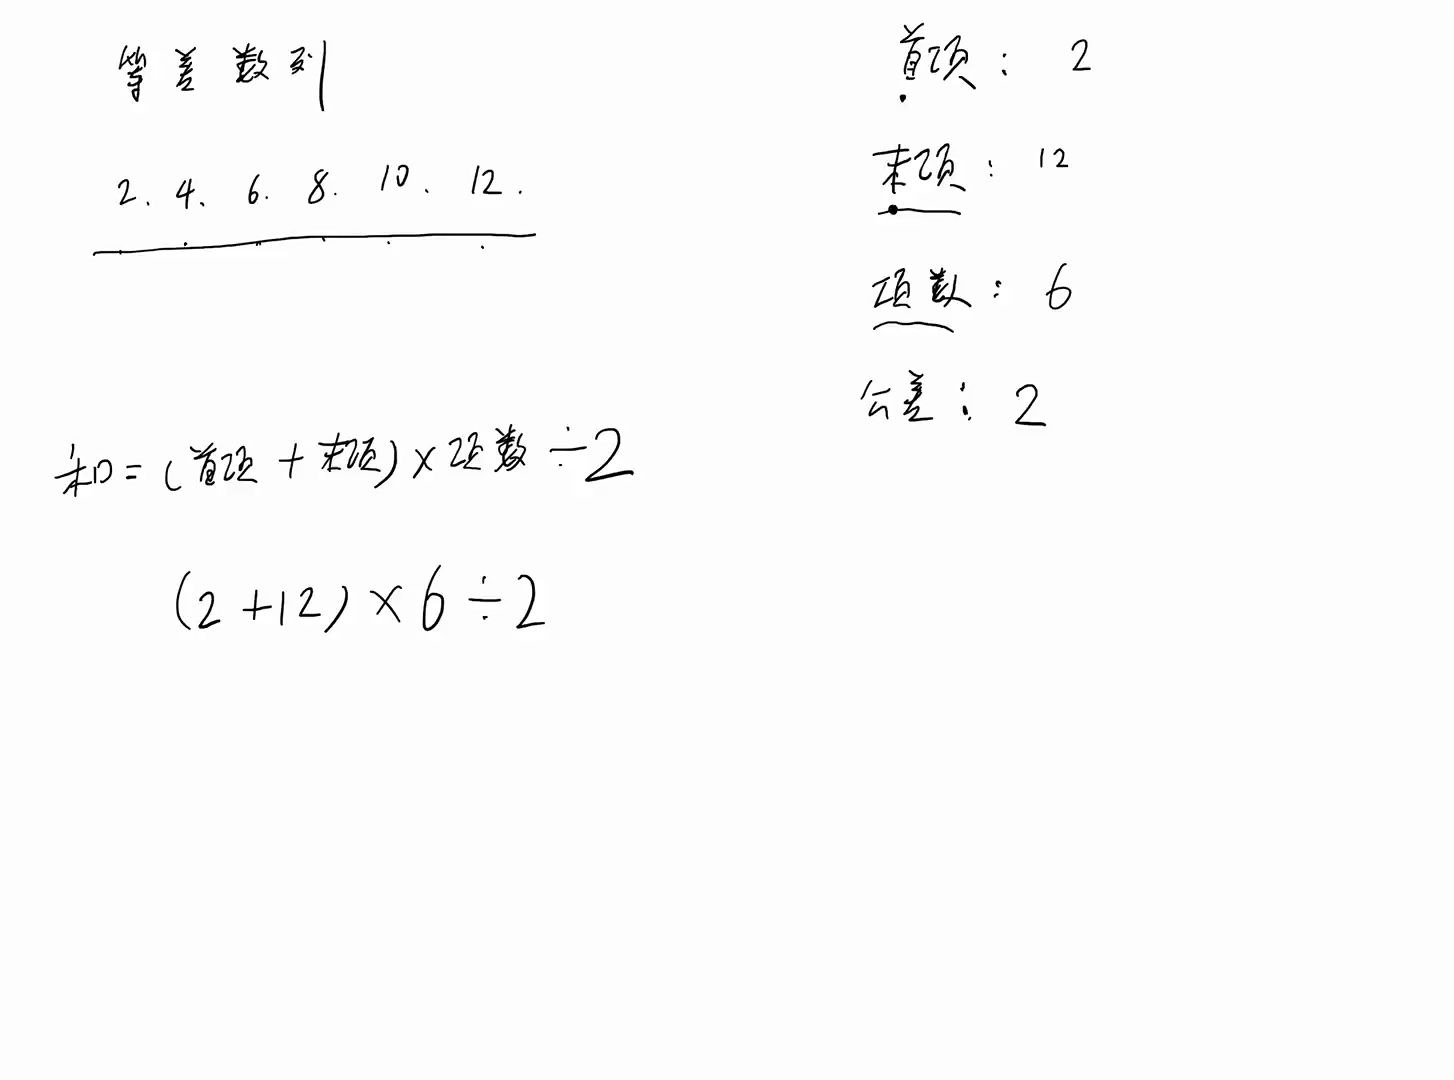 等差数列
2. 4. 6. 8. 10. 12.
和=(首项+末项)×项数÷2
(2+12)×6÷2
首项: 2
末项: 12
项数: 6
公差: 2